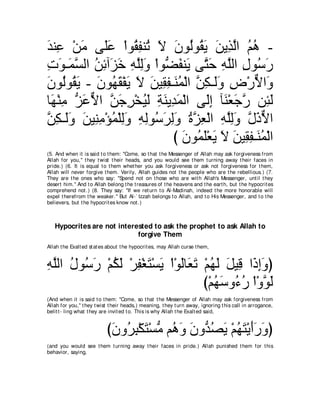 هُمُ الَّذِينَ يَقُولُونَ لاَ تُنفِقُواْ عَلَى مَنْ عِندَ -
رَسُولِ اللَّهِ حَتَّى يَنفَضُّواْ وَلِلَّهِ خَزَآئِنُ السَّمَـوَتِ
وَالاٌّرْضِ وَلَـكِنَّ الْمُنَـفِقِينَ لاَ يَفْقَهُونَ - يَقُولُونَ
لَئِن رَّجَعْنَآ إِلَى الْمَدِينَةِ لَيُخْرِجَنَّ الاٌّعَزُّ مِنْهَا
الاٌّذَلَّ وَلِلَّهِ الْعِزَّةُ وَلِرَسُولِهِ وَلِلْمُؤْمِنِينَ وَلَـكِنَّ
الْمُنَـفِقِينَ لاَ يَعْلَمُونَ )
(5. And when it is said to them: "Come, so that the Messenger of Allah may ask forgiveness from
Allah for you,'' they twist their heads, and you would see them turning away their faces in
pride.) (6. It is equal to them whether you ask forgiveness or ask not forgiveness for them,
Allah will never forgive them. Verily, Allah guides not the people who are the rebellious.) (7.
They are the ones who say: "Spend not on those who are with Allah's Messenger, until they
desert him.'' And to Allah belong the treasures of the heavens and the earth, but the hypocrites
comprehend not.) (8. They say: "If we return to Al-Madinah, indeed the more honorable will
expel therefrom the weaker.'' But Al-`Izzah belongs to Allah, and to His Messenger, and to the
believers, but the hypocrites know not.)
Hypocrites are not interested to ask the prophet to ask Allah to
forgive Them
Allah the Exalted states about the hypocrites, may Allah curse them,
وَإِذَا قِيلَ لَهُمْ تَعَالَوْاْ يَسْتَغْفِرْ لَكُمْ رَسُولُ اللَّهِ
لَوَّوْاْ رُءُوسَهُمْ)
(And when it is said to them: "Come, so that the Messenger of Allah may ask forgiveness from
Allah for you," they twist their heads,) meaning, they turn away, ignoring this call in arrogance,
belittling what they are invited to. This is why Allah the Exalted said,
(وَرَأَيْتَهُمْ يَصُدُّونَ وَهُم مُّسْتَكْبِرُونَ)
(and you would see them turning away their faces in pride.) Allah punished them for this
behavior, saying,